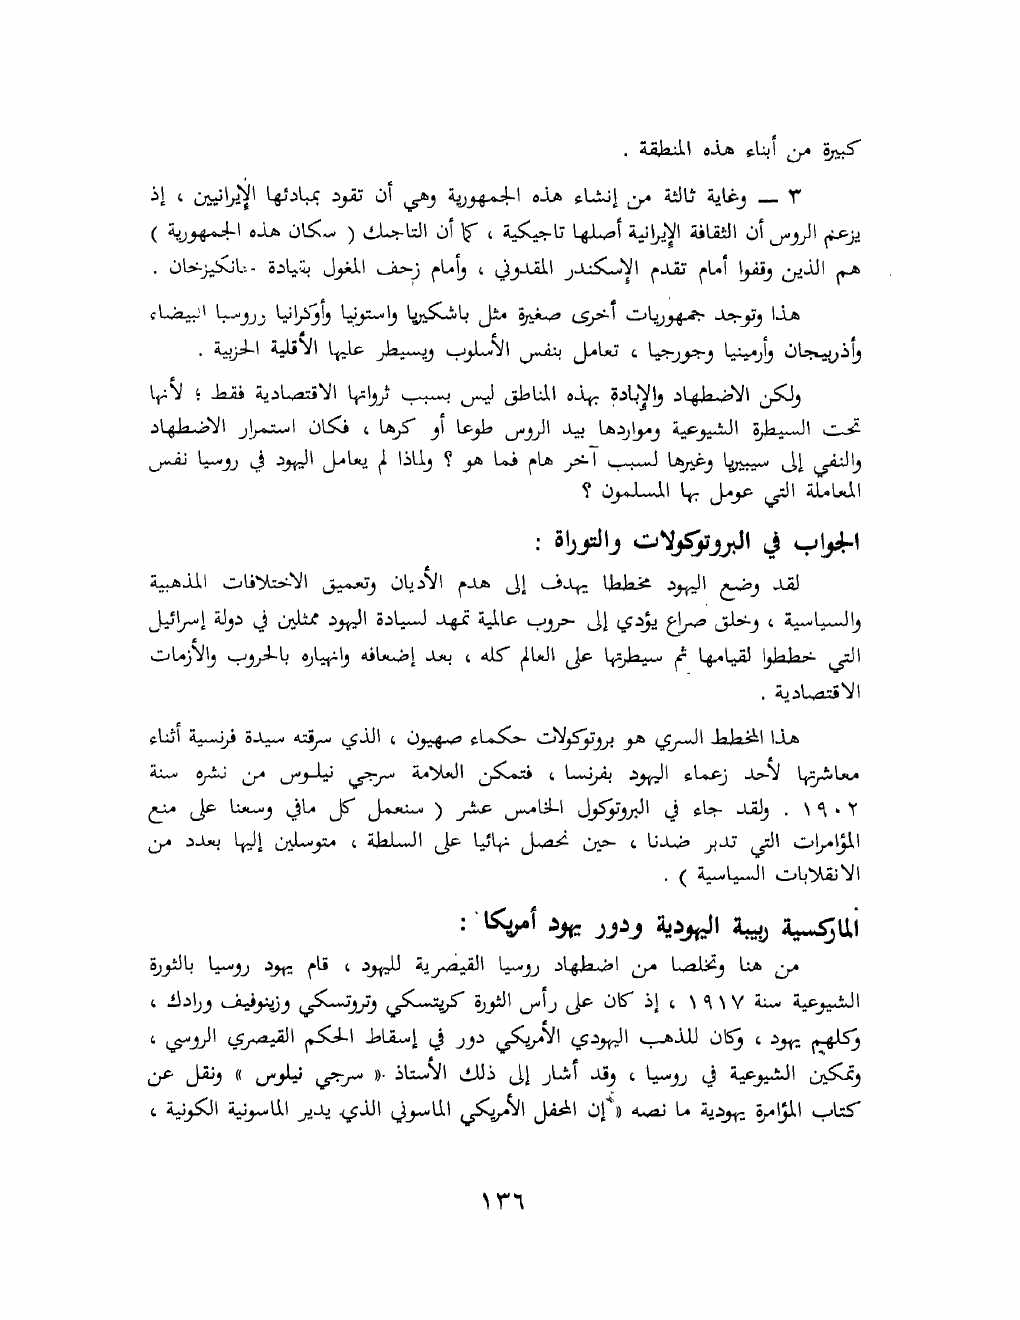 كبيرة من أبناء هذه المنطقة .
٣ — وغاية ثالثة من إنشاء هذه الجمهورية وهي أن تقود بمبادئها الإيرانيين ، إذ
يزعم الروس أن الثقافة الإيرانية أصلها تاجيكية ، كما أن التاجيك ( سكان هذه الجمهورية )
هم الذين وقفوا أمام تقدم الإسكندر المقدوني ، وأمام زحف المغول بقيادة .
هذا وتوجد جمهوريات أخرى صغيرة مثل باشكيريا واستونيا وأوكرانيا وروسيا البيضاء
وأذربيجان وأرمينيا وجورجيا ، تعامل بنفس الأسلوب ويسيطر عليها الأقلية الحزبية .
ولكن الاضطهاد والإبادة بهذه المناطق ليس بسبب ثرواتها الاقتصادية فقط ؛ لأنها
تحت السيطرة الشيوعية ومواردها بيد الروس طوعا أو كرها ، فكان استمرار الاضطهاد
والنفي إلى سيبيريا وغيرها لسبب آخر هام فما هو ؟ ولماذا لم يعامل اليهود في روسيا نفس
المعاملة التي عومل بها المسلمون ؟
الجواب في البروتوكولات والتوراة :
لقد وضع اليهود مخططا يهدف إلى هدم الأديان وتعميق الاختلافات المذهبية
والسياسية ، وخلق صراع يؤدي إلى حروب عالمية تمهد لسيادة اليهود ممثلين في دولة إسرائيل
التي خططوا لقيامها ثم سيطرتها على العالم كله ، بعد إضعافه وانهياره بالحروب والأزمات
الاقتصادية .
هذا المخطط السري هو بروتوكولات حكماء صهيون ، الذي سرقته سيدة فرنسية أثناء
معاشرتها لأحد زعماء اليهود بفرنسا ، فتمكن العلامة سرجي نيلوس من نشره سنة
١٩٠٢ . ولقد جاء في البروتوكول الخامس عشر ( سنعمل كل مافي وسعنا على منع
المؤامرات التي تدبر ضدنا ، حين نحصل نهائيا على السلطة ، متوسلين إليها بعدد من
الانقلابات السياسية ) .
الماركسية ربيبة اليهودية ودور يهود أمريكا :
من هنا وتخلصا من اضطهاد روسيا القيصرية لليهود ، قام يهود روسيا بالثورة
الشيوعية سنة ١٩١٧ ، إذ كان على رأس الثورة كريتسكي وتروتسكي وزينوفيف ورادك ،
وكلهم يهود ، وكان للذهب اليهودي الأمريكي دور في إسقاط الحكم القيصري الروسي ،
وتمكين الشيوعية في روسيا ، وقد أشار إلى ذلك الأستاذ « سرجي نيلوس » ونقل عن
كتاب المؤامرة يهودية ما نصه « إن المحفل الأمريكي الماسوني الذي يدير الماسونية الكونية ،
١٣٦